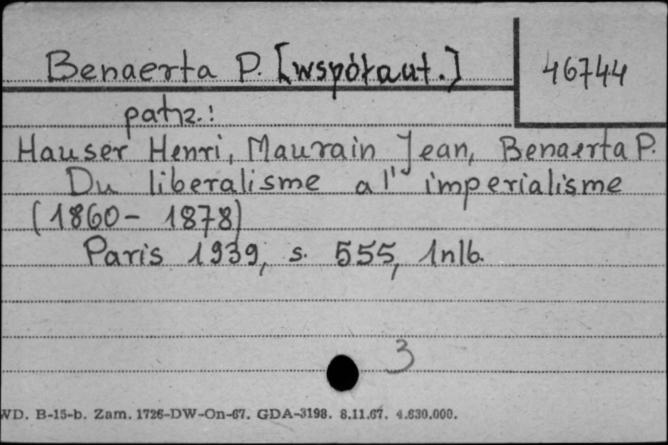 Benaerta P. [współaut.]
46744
patrz.:
Hauser Henri, Maurain Jean, Benaerta P.
Du liberalisme a l' imperialisme
(1860- 1878)
Paris 1939, s. 555, 1nlb.
3
WD. B-15-b. Zam. 1726-DW-On-67. GDA-3198. 8.11.67. 4.630.000.